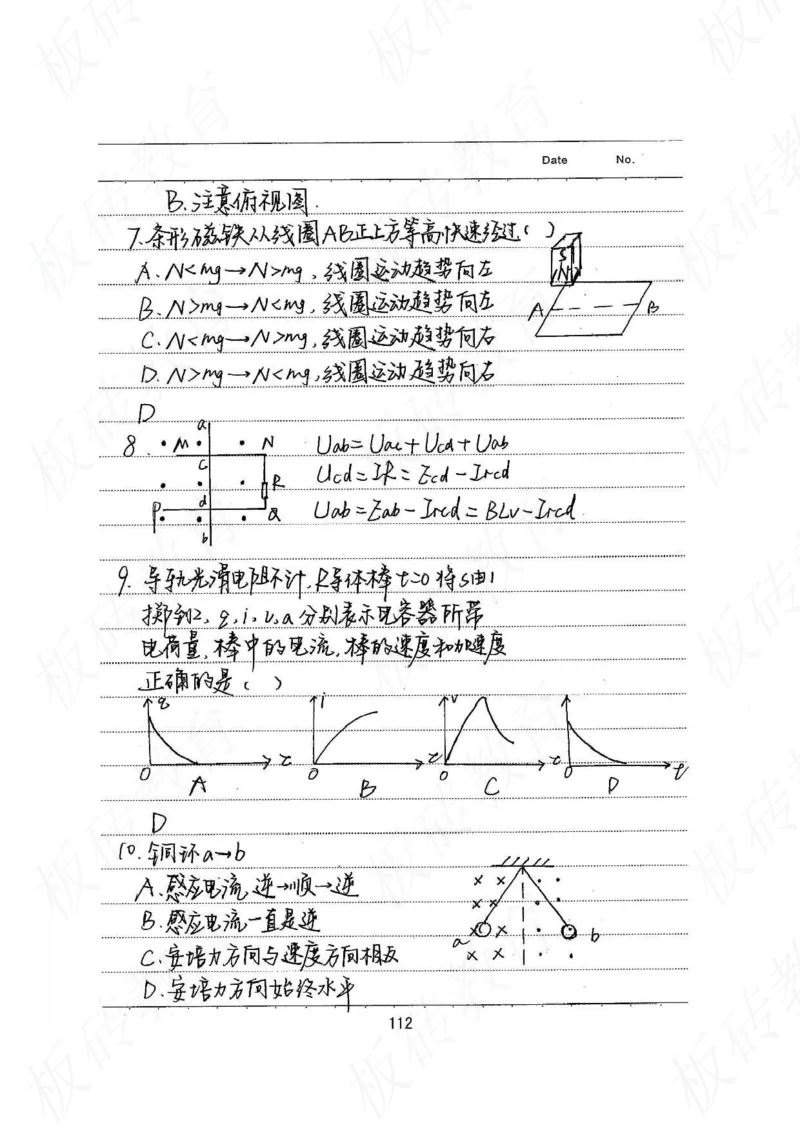 Date No.
B.注意俯视图.
7.条形磁铁从线圈AB正上方等高快速经过( )
S
N
A. N<mg→N>mg,线圈运动趋势向左
B. N>mg→N<mg,线圈运动趋势向左
A B
C. N<mg→N>mg,线圈运动趋势向右
D. N>mg→N<mg,线圈运动趋势向右
D
8.
a
M N
c
R
d
P Q
b
Uab=Uac+Ucd+Uab
Ucd=IR=Ecd-Ircd
Uab=Eab-Ircd=BLv-Ircd
9. 导轨光滑电阻不计,R导体棒t=0将S由1
掷到2, q,i,v,a分别表示电容器所带
电荷量,棒中的电流,棒的速度和加速度
正确的是( )
q i v
t t t t
0 0 0 0
A B C D
D
10.铜环a→b
A.感应电流逆→顺→逆
B.感应电流一直是逆
a b
C.安培力方向与速度方向相反
D.安培力方向始终水平
112
板砖教育